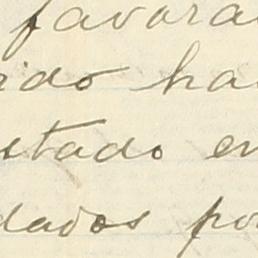 favora
ido ha
ltado en
dados por